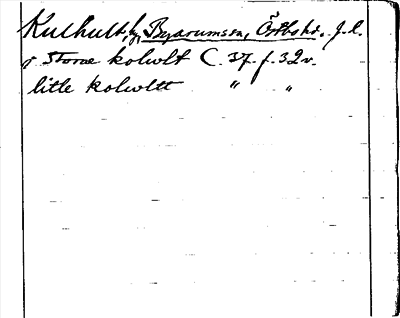 Kulhult, by Byarumssn, Östbohd. J. l.
i Storae kolwlt C. 37. f. 32v.
litle kolwltt " "